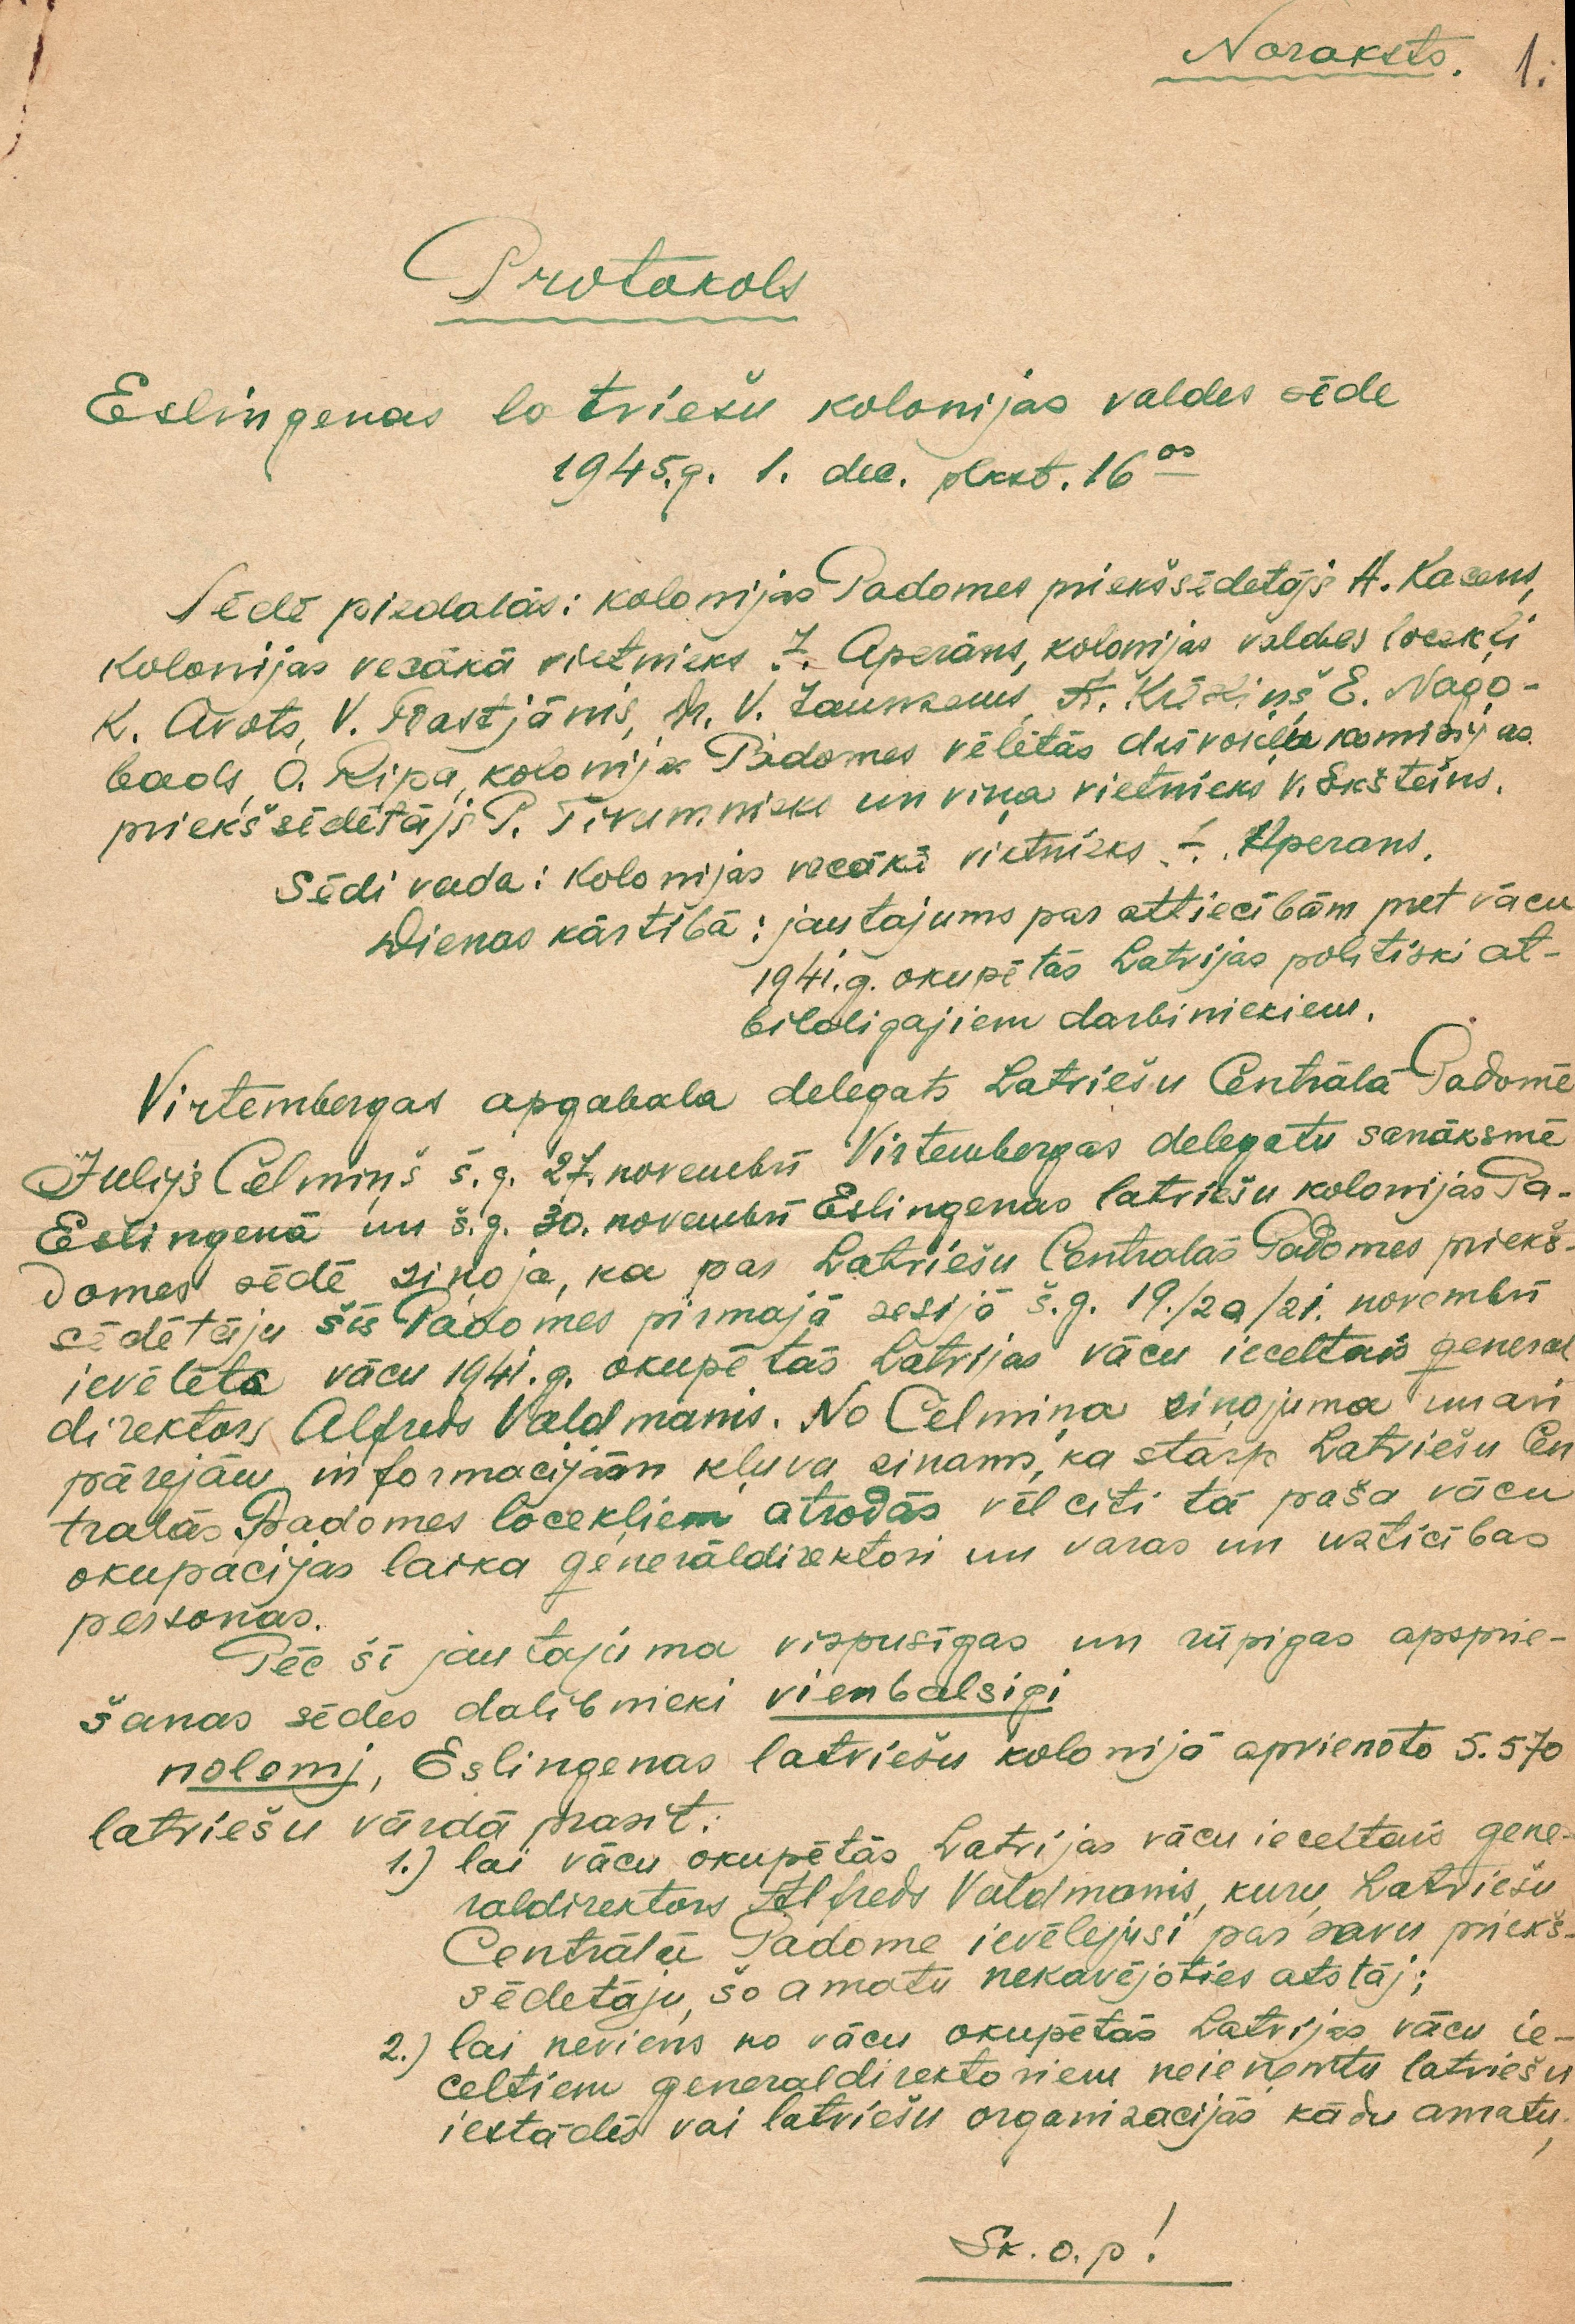 Noraksts. 1.
Protokols
Eslingenas latviešu kolonijas valdes sēde
1945.g. 1. dec. plkst. 16 oo
Sēdē piedalās: kolonijas Padomes priekšsēdetājs A. Kacens,
kolonijas vecākā vietnieks Ž. Aperāns, kolonijas valdes locekļi
K. Avots, V. Bastjānis, Dr. V. Jaunzems, A. Ķūķiņš, E. Nago-
bads, O. Ripa, kolonijas Padomes vēlētās dzīvokļu komisijas
priekšsēdētājs P. Tīrumnieks un viņa vietnieks V. Ekšteins.
Sēdi vada: Kolonijas vecākā vietnieks Aperans.
Dienas kārtībā: jautajums par attiecībām pret vācu
1941.g. okupētās Latvijas politiski at-
bildigajiem darbiniekiem.
Virtembergas apgabala delegats Latviešu Centrālā Padomē
Julijs Celmiņš š.g. 27. novembrī Virtembergas delegatu sanāksmē
Eslingenā un š.g. 30. novembrī Eslingenas latviešu kolonijas Pa-
domes sēdē ziņoja, ka par Latviešu Centralās Padomes priekš-
sēdētāju šīs Padomes pirmajā sesijā š.g. 19./20/21. novembrī
ievēlēts vācu 1941.g. okupētās Latvijas vācu ieceltais general
direktors Alfreds Valdmanis. No Celmiņa ziņojuma un arī
pārejām informacijām kļuva zinams, ka starp Latviešu Cen
tralās Padomes locekļiem atrodās vēl citi tā paša vācu
okupācijas laika ģenerāldirektori un varas un uzticības
personas.
Pēc šī jautajuma vispusīgas un rūpigas apsprie-
šanas sēdes dalībnieki vienbalsigi
nolemj, Eslingenas latviešu kolonijā apvienoto 5.570
latviešu vārdā prasīt:
1.) lai vācu okupētās Latvijas vācu ieceltais gene-
raldirektors Alfreds Valdmanis, kuru Latviešu
Centrālā Padome ievēlejusi par savu priekš-
sēdetāju, šo amatu nekavējoties atstāj;
2.) lai neviens no vācu okupētās Latvijas vācu ie-
celtiem generaldirektoriem neieņemtu latviešu
iestādēs vai latviešu organizacijās kādu amatu;
Sk. o. p!